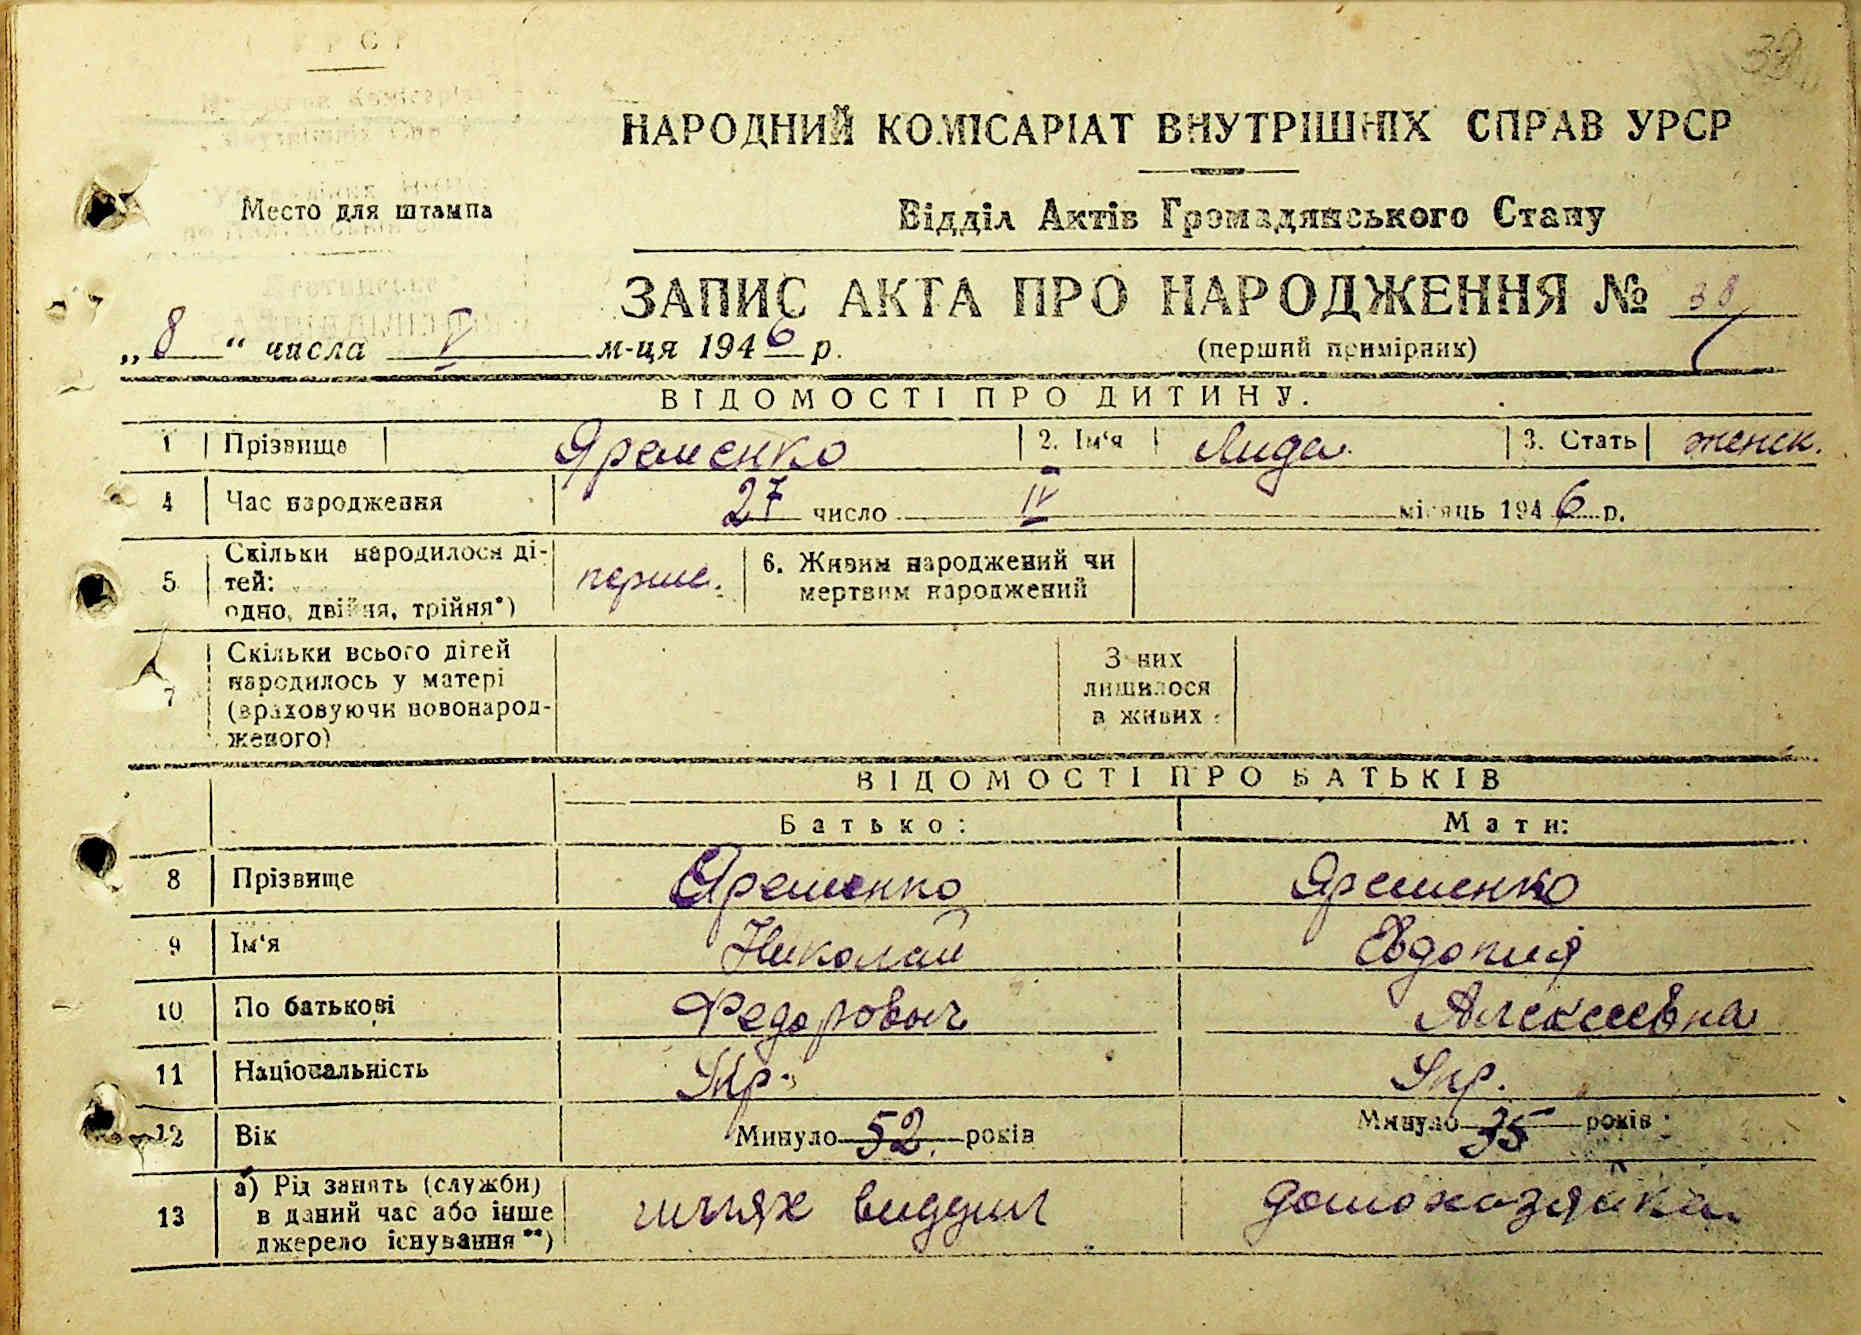 38
НАРОДНИЙ КОМІСАРІАТ ВНУТРІШНІХ СПРАВ УРСР
Место для штампа
Відділ Актів Громадянського Стану
ЗАПИС АКТА ПРО НАРОДЖЕННЯ № 38
„8“ числа V м-ця 1946 р.
(перший примірник)
ВІДОМОСТІ ПРО ДИТИНУ.
1 Прізвище Яременко 2. Ім'я Лида 3. Стать женск.
4 Час народження 27 число IV місяць 1946 р.
5 Скільки народилося ді-
тей:
одно, двійня, трійня*) перше.
6. Живим народжений чи
мертвим народжений
7 Скільки всього дітей
народилось у матері
(враховуючи новонарод-
женого)
З них
лишилося
в живих
ВІДОМОСТІ ПРО БАТЬКІВ
Батько: Мати:
8 Прізвище Яременко Яременко
9 Ім'я Николай Евдокия
10 По батькові Федорович Алексеевна
11 Національність Укр. Укр.
12 Вік Минуло 52 років Минуло 35 років
13 а) Рід занять (служби)
в даний час або інше
джерело існування**)
шлях домохозяйка